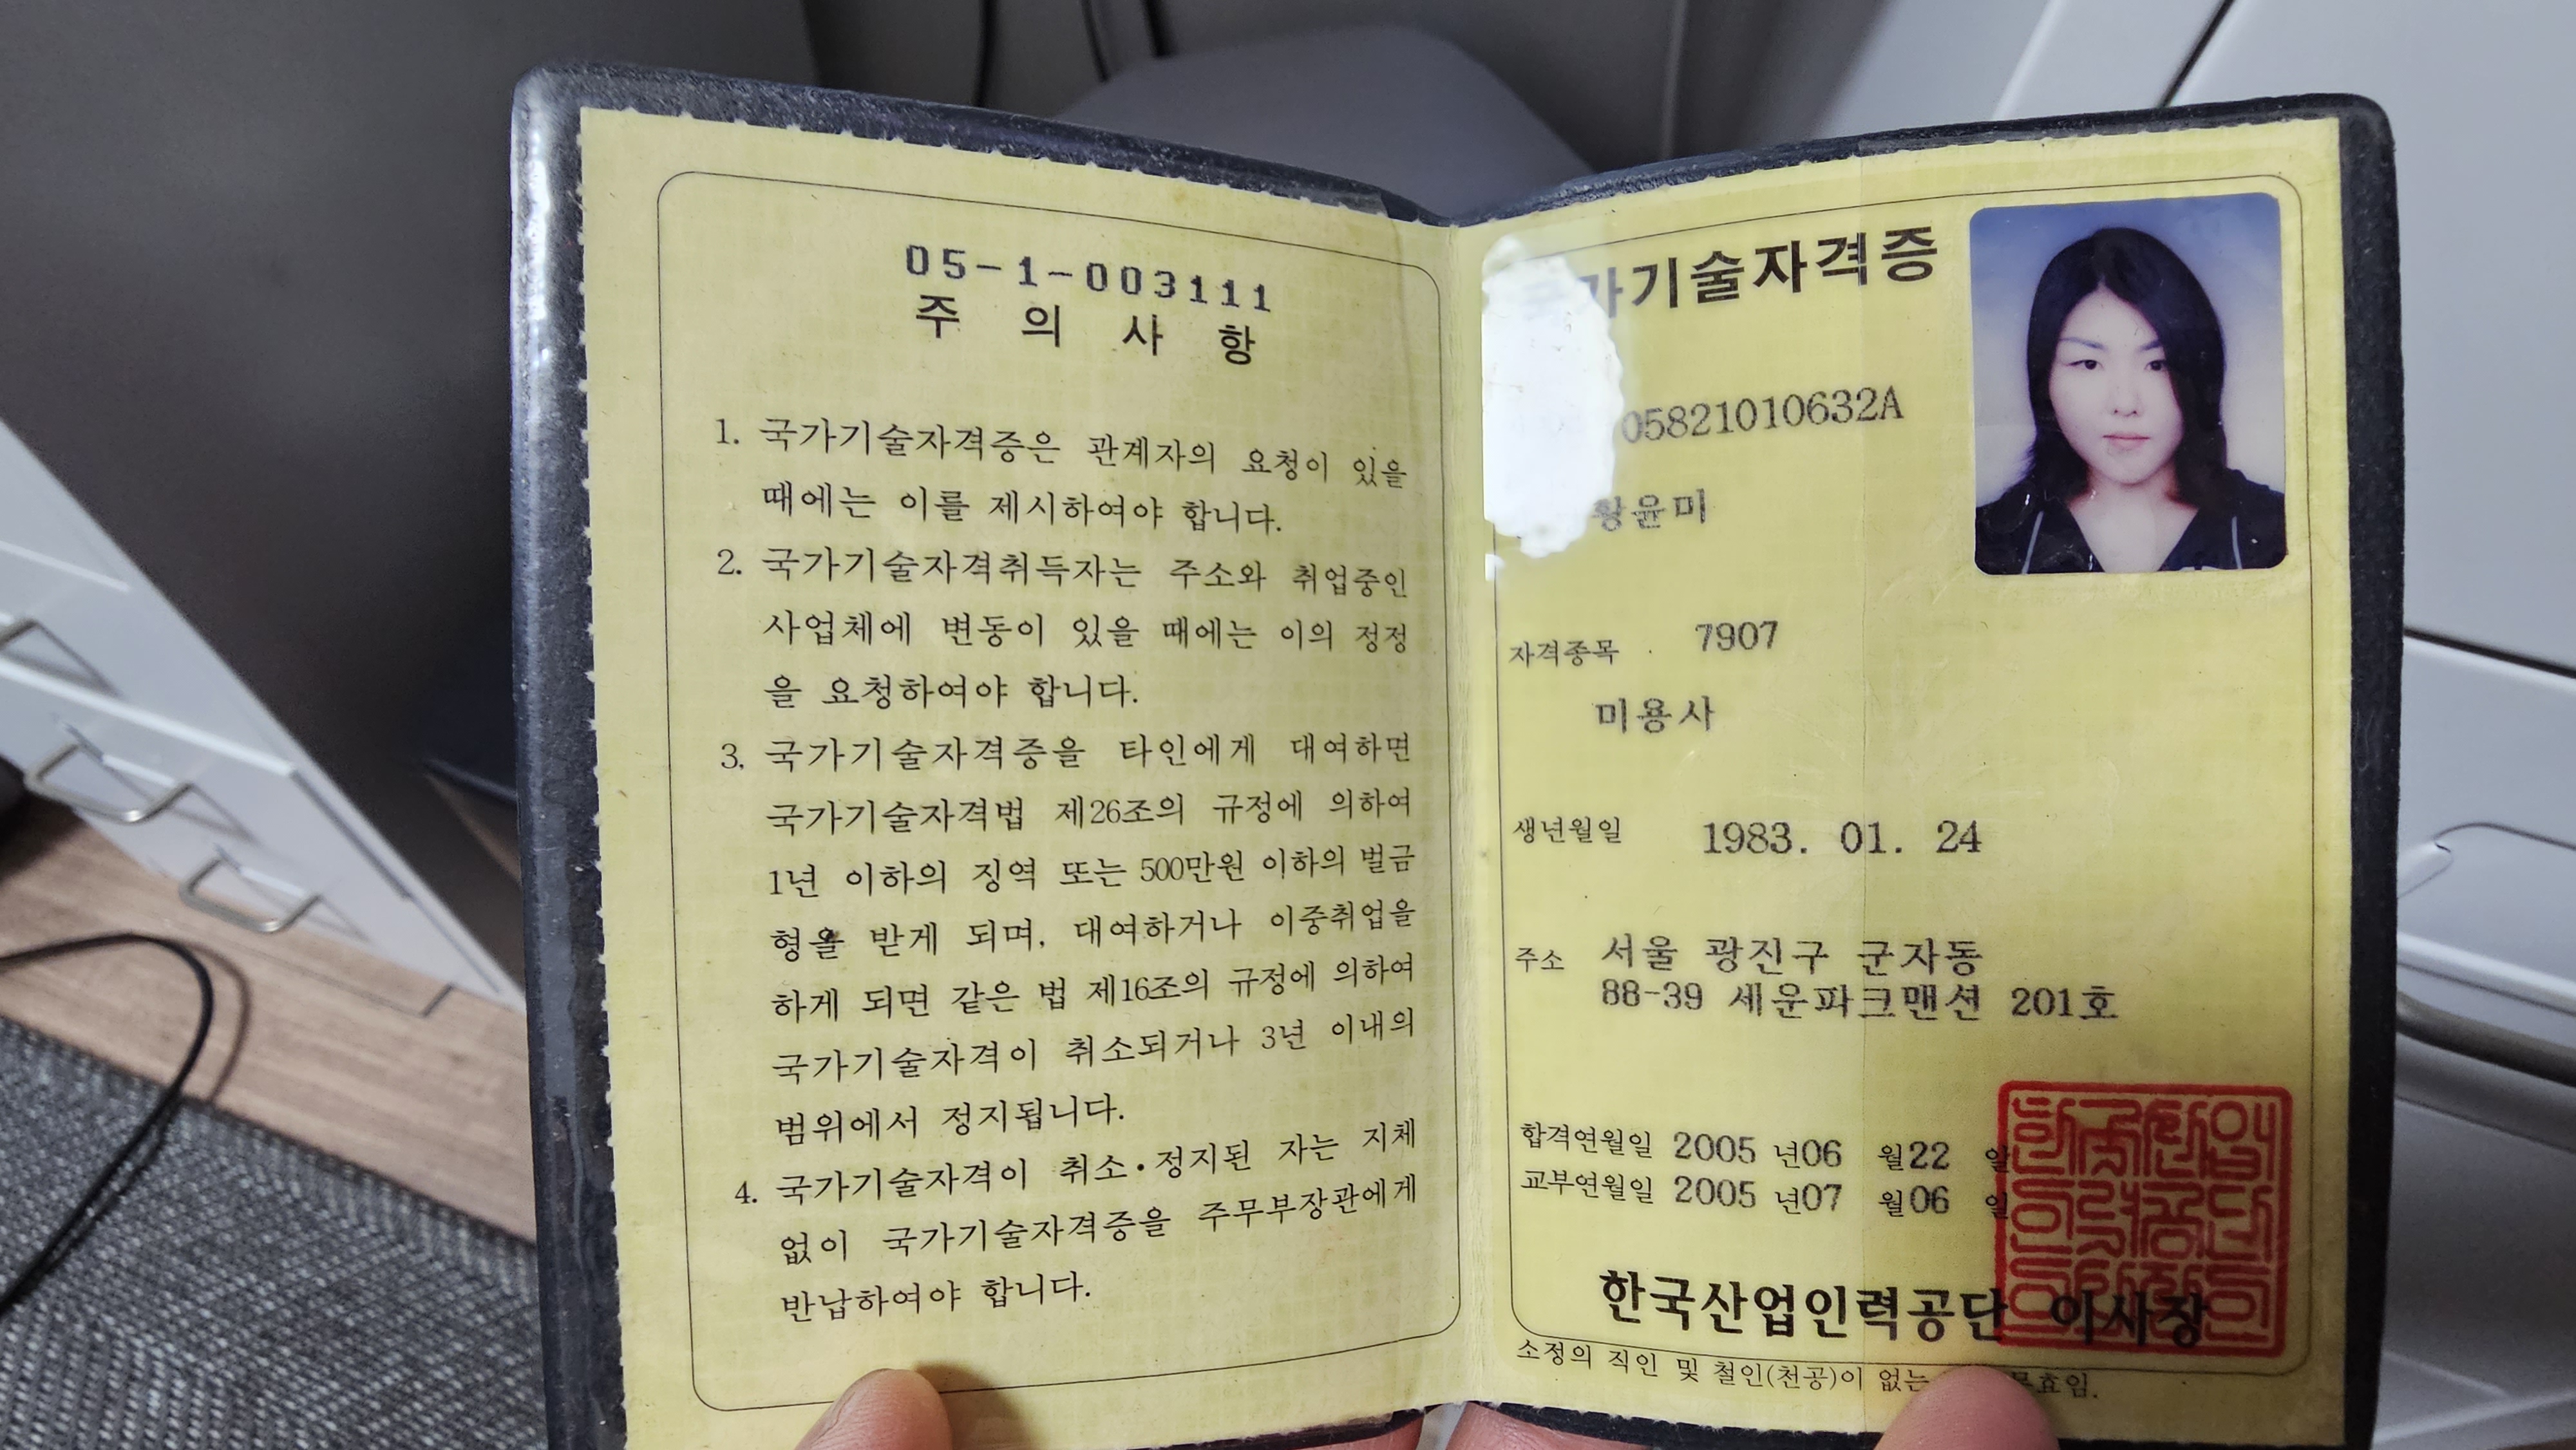 05-1-003111
주 의 사 항
1. 국가기술자격증은 관계자의 요청이 있을
때에는 이를 제시하여야 합니다.
2. 국가기술자격취득자는 주소와 취업중인
사업체에 변동이 있을 때에는 이의 정정
을 요청하여야 합니다.
3. 국가기술자격증을 타인에게 대여하면
국가기술자격법 제26조의 규정에 의하여
1년 이하의 징역 또는 500만원 이하의 벌금
형을 받게 되며, 대여하거나 이중취업을
하게 되면 같은 법 제16조의 규정에 의하여
국가기술자격이 취소되거나 3년 이내의
범위에서 정지됩니다.
4. 국가기술자격이 취소•정지된 자는 지체
없이 국가기술자격증을 주무부장관에게
반납하여야 합니다.
가기술자격증
05821010632A
황윤미
자격종목 7907
미용사
생년월일 1983. 01. 24
주소 서울 광진구 군자동
88-39 세운파크맨션 201호
합격연월일 2005 년06 월22 일
교부연월일 2005 년07 월06 일
한국산업인력공단 이사장
소정의 직인 및 철인(천공)이 없는 무효임.